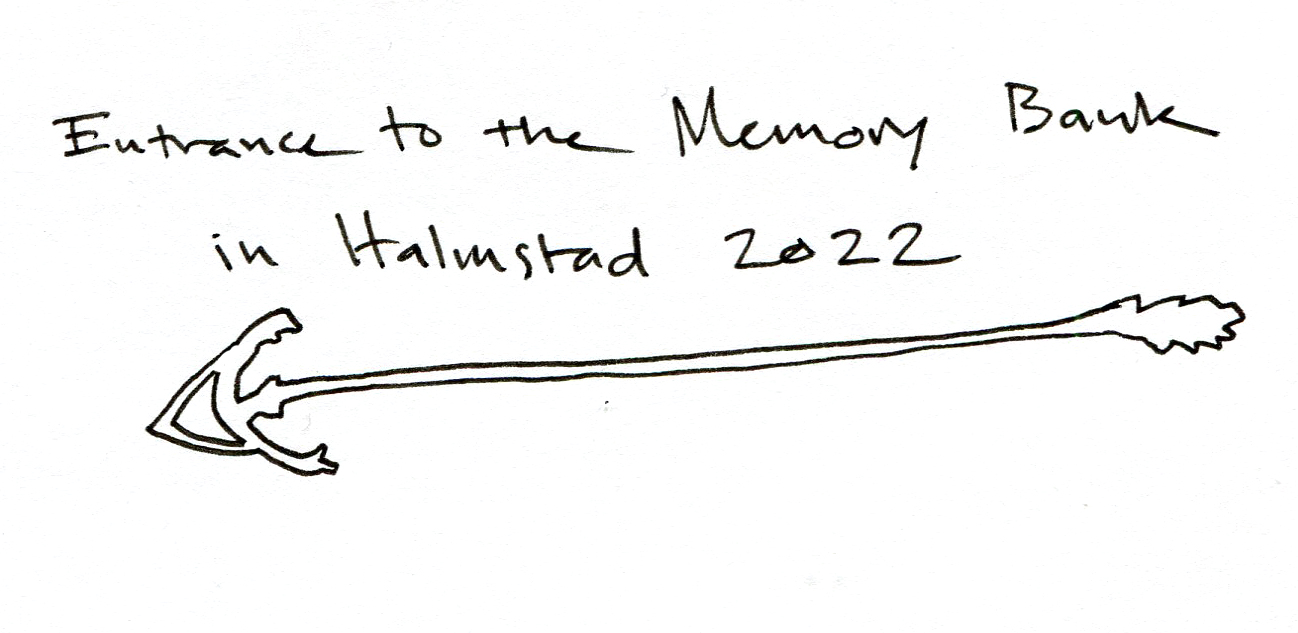 Entrance to the Memory Bank
in Halmstad 2022